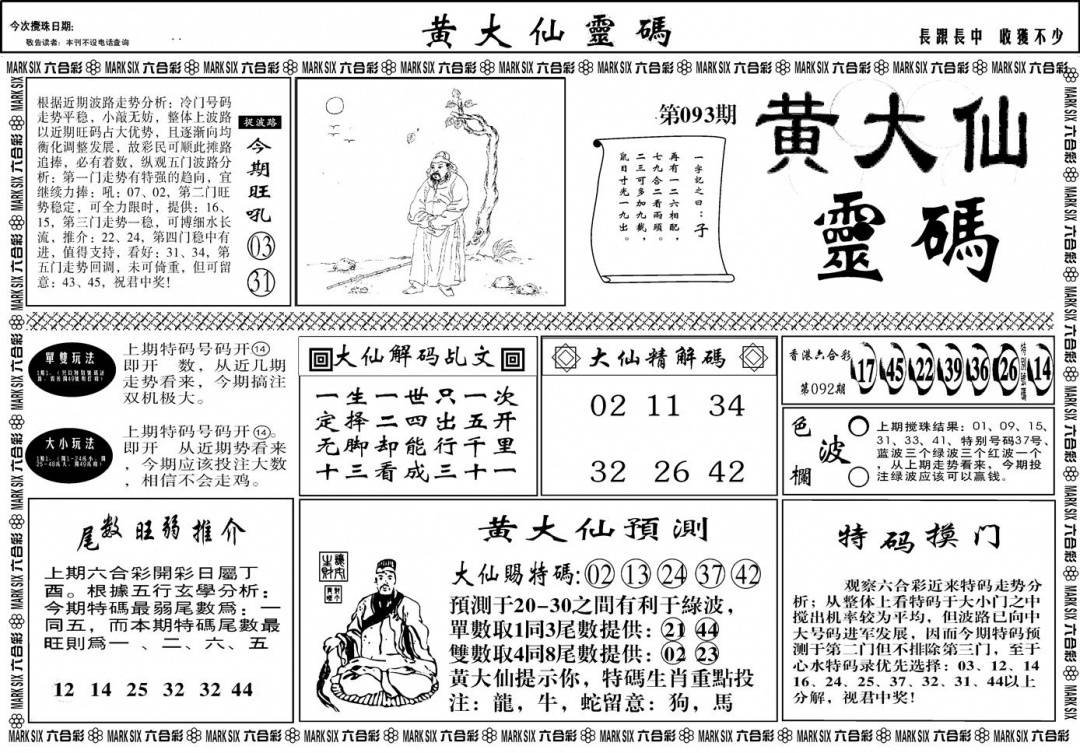 今次攪珠日期:
敬告读者：本刊不设电话查询
黄大仙靈碼
長跟長中 收獲不少
MARK SIX 六合彩 MARK SIX 六合彩 MARK SIX 六合彩 MARK SIX 六合彩 MARK SIX 六合彩 MARK SIX 六合彩 MARK SIX 六合彩 MARK SIX 六合彩 MARK SIX 六合彩 MARK SIX 六合彩 MARK SIX 六合彩
根据近期波路走势分析：冷门号码
走势平稳，小敲无妨，整体上波路
以近期旺码占大优势，且逐渐向均
衡化调整发展，故彩民可顺此摊路
追捧，必有着数，纵观五门波路分
析：第一门走势有特强的趋向，宜
继续力捧：吼：07、02，第二门旺
势稳定，可全力限时，提供：16、
15，第三门走势一稳，可博细水长
流，推介：22、24，第四门稳中有
进，值得支持，看好：31、34，第
五门走势回调，未可倚重，但可留
意：43、45，祝君中奖!
捉波路
今期旺吼
03
31
第093期
一字記之曰：子
再有一二六相配，
七九合二看兩頭。
二三可多加九截，
鼠目寸光一九出。
黄大仙
靈碼
單雙玩法
上期特码号码开⑭
即开　数，从近几期
走势看来，今期搞注
双机极大。
大小玩法
上期特码号码开⑭。
即开　从近期势看来
，今期应该投注大数
，相信不会走鸡。
大仙解码乩文
一生一世只一次
定择二四出五开
无脚却能行千里
十三看成三十一
大仙精解碼
02 11 34
32 26 42
香港六合彩
第092期
17 45 22 39 36 26 特别號碼 14
色波欄
上期搅珠结果：01、09、15、
31、33、41、特别号码37号、
蓝波三个绿波三个红波一个
，从上期走势看来，今期投
注绿波应该可以赢钱。
尾数旺弱推介
上期六合彩開彩日屬丁
酉。根據五行玄學分析：
今期特碼最弱尾數爲：一
同五，而本期特碼尾數最
旺則爲一 、二、六、五
12 14 25 32 32 44
黄大仙預測
大仙賜特碼:02 13 24 37 42
預測于20-30之間有利于綠波，
單數取1同3尾數提供：21 44
雙數取4同8尾數提供：02 23
黄大仙提示你，特碼生肖重點投
注：龍，牛，蛇留意：狗，馬
特码摸门
观察六合彩近来特码走势分
析；从整体上看特码于大小门之中
搅出机率较为平均，但波路已向中
大号码进军发展，因而今期特码预
测于第二门但不排除第三门，至于
心水特码录优先选择：03、12、14
16、24、25、37、32、31、44以上
分解，视君中奖!
MARK SIX 六合彩 MARK SIX 六合彩 MARK SIX 六合彩 MARK SIX 六合彩 MARK SIX 六合彩 MARK SIX 六合彩 MARK SIX 六合彩 MARK SIX 六合彩 MARK SIX 六合彩 MARK SIX 六合彩 MARK SIX 六合彩